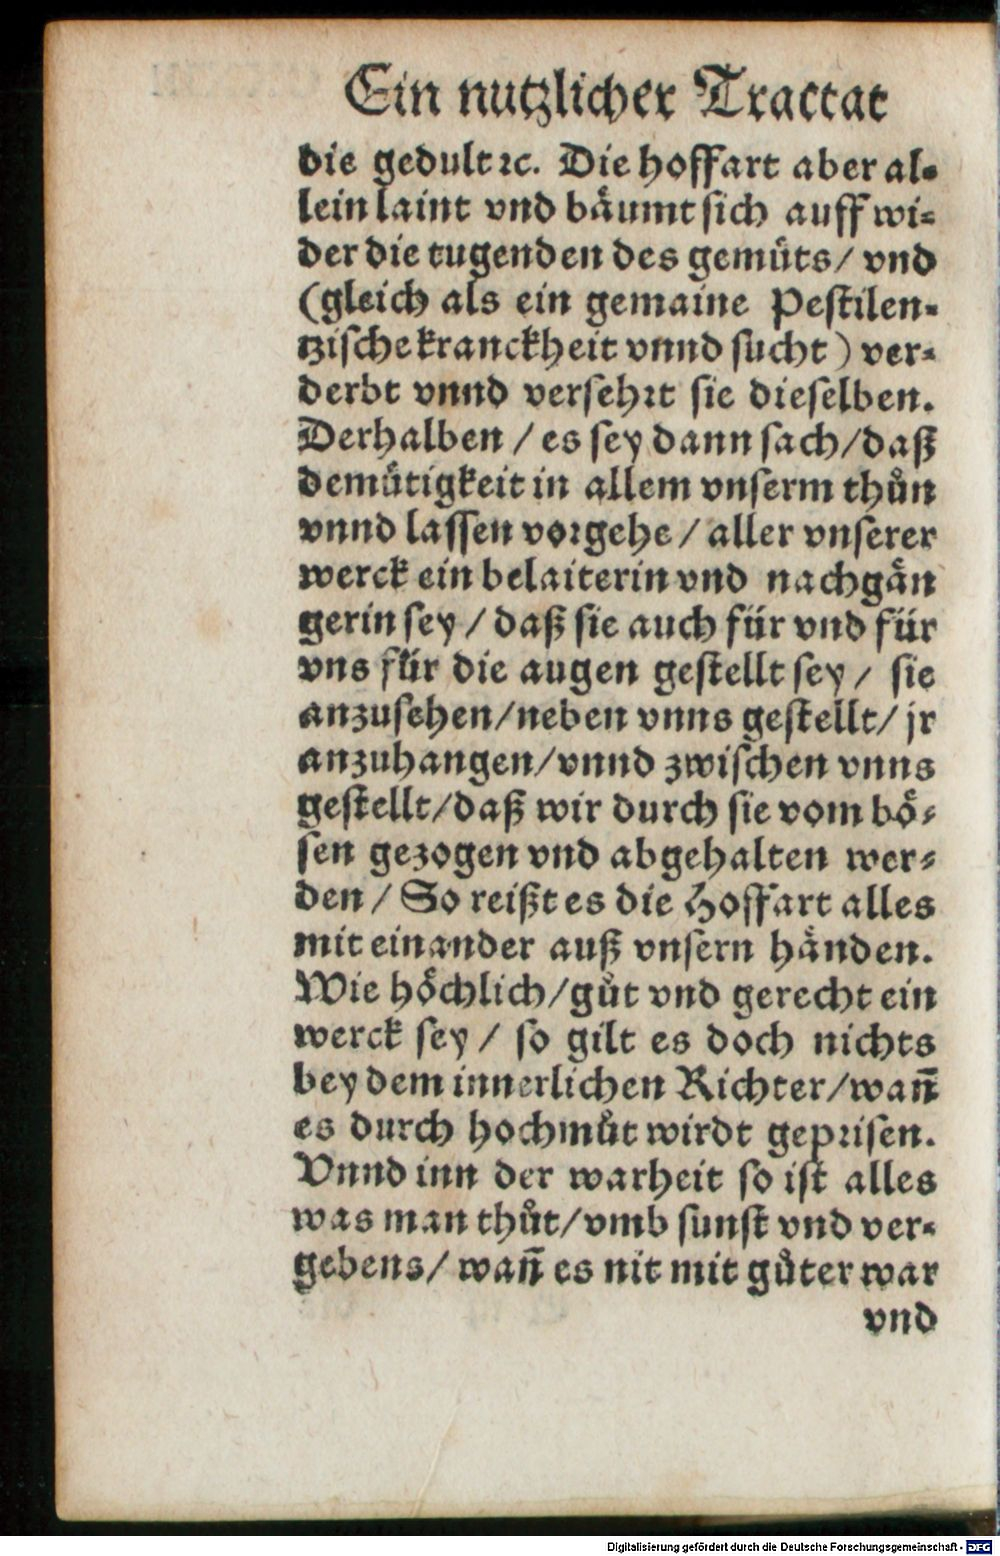 Ein nutzlicher Tractat
die gedult ꝛc. Die hoffart aber al-
lein laint vnd bäumt sich auff wi-
der die tugenden des gemüts/ vnd
(gleich als ein gemaine Pestilen-
tzische kranckheit vnnd sucht) ver-
derbt vnnd versehrt sie dieselben.
Derhalben / es sey dann sach/daß
demütigkeit in allem vnserm thůn
vnnd lassen vorgehe / aller vnserer
werck ein belaiterin vnd nachgän
gerin sey / daß sie auch für vnd für
vns für die augen gestellt sey / sie
anzusehen/neben vnns gestellt/ jr
anzuhangen/vnnd zwischen vnns
gestellt/daß wir durch sie vom bö-
sen gezogen vnd abgehalten wer-
den / So reißt es die Hoffart alles
mit einander auß vnsern händen.
Wie höchlich/gůt vnd gerecht ein
werck sey / so gilt es doch nichts
bey dem innerlichen Richter/wañ
es durch hochmůt wirdt geprisen.
Vnnd inn der warheit so ist alles
was man thůt/vmb sunst vnd ver-
gebens/ wañ es nit mit gůter war
vnd
Digitalisierung gefördert durch die Deutsche Forschungsgemeinschaft - DFG